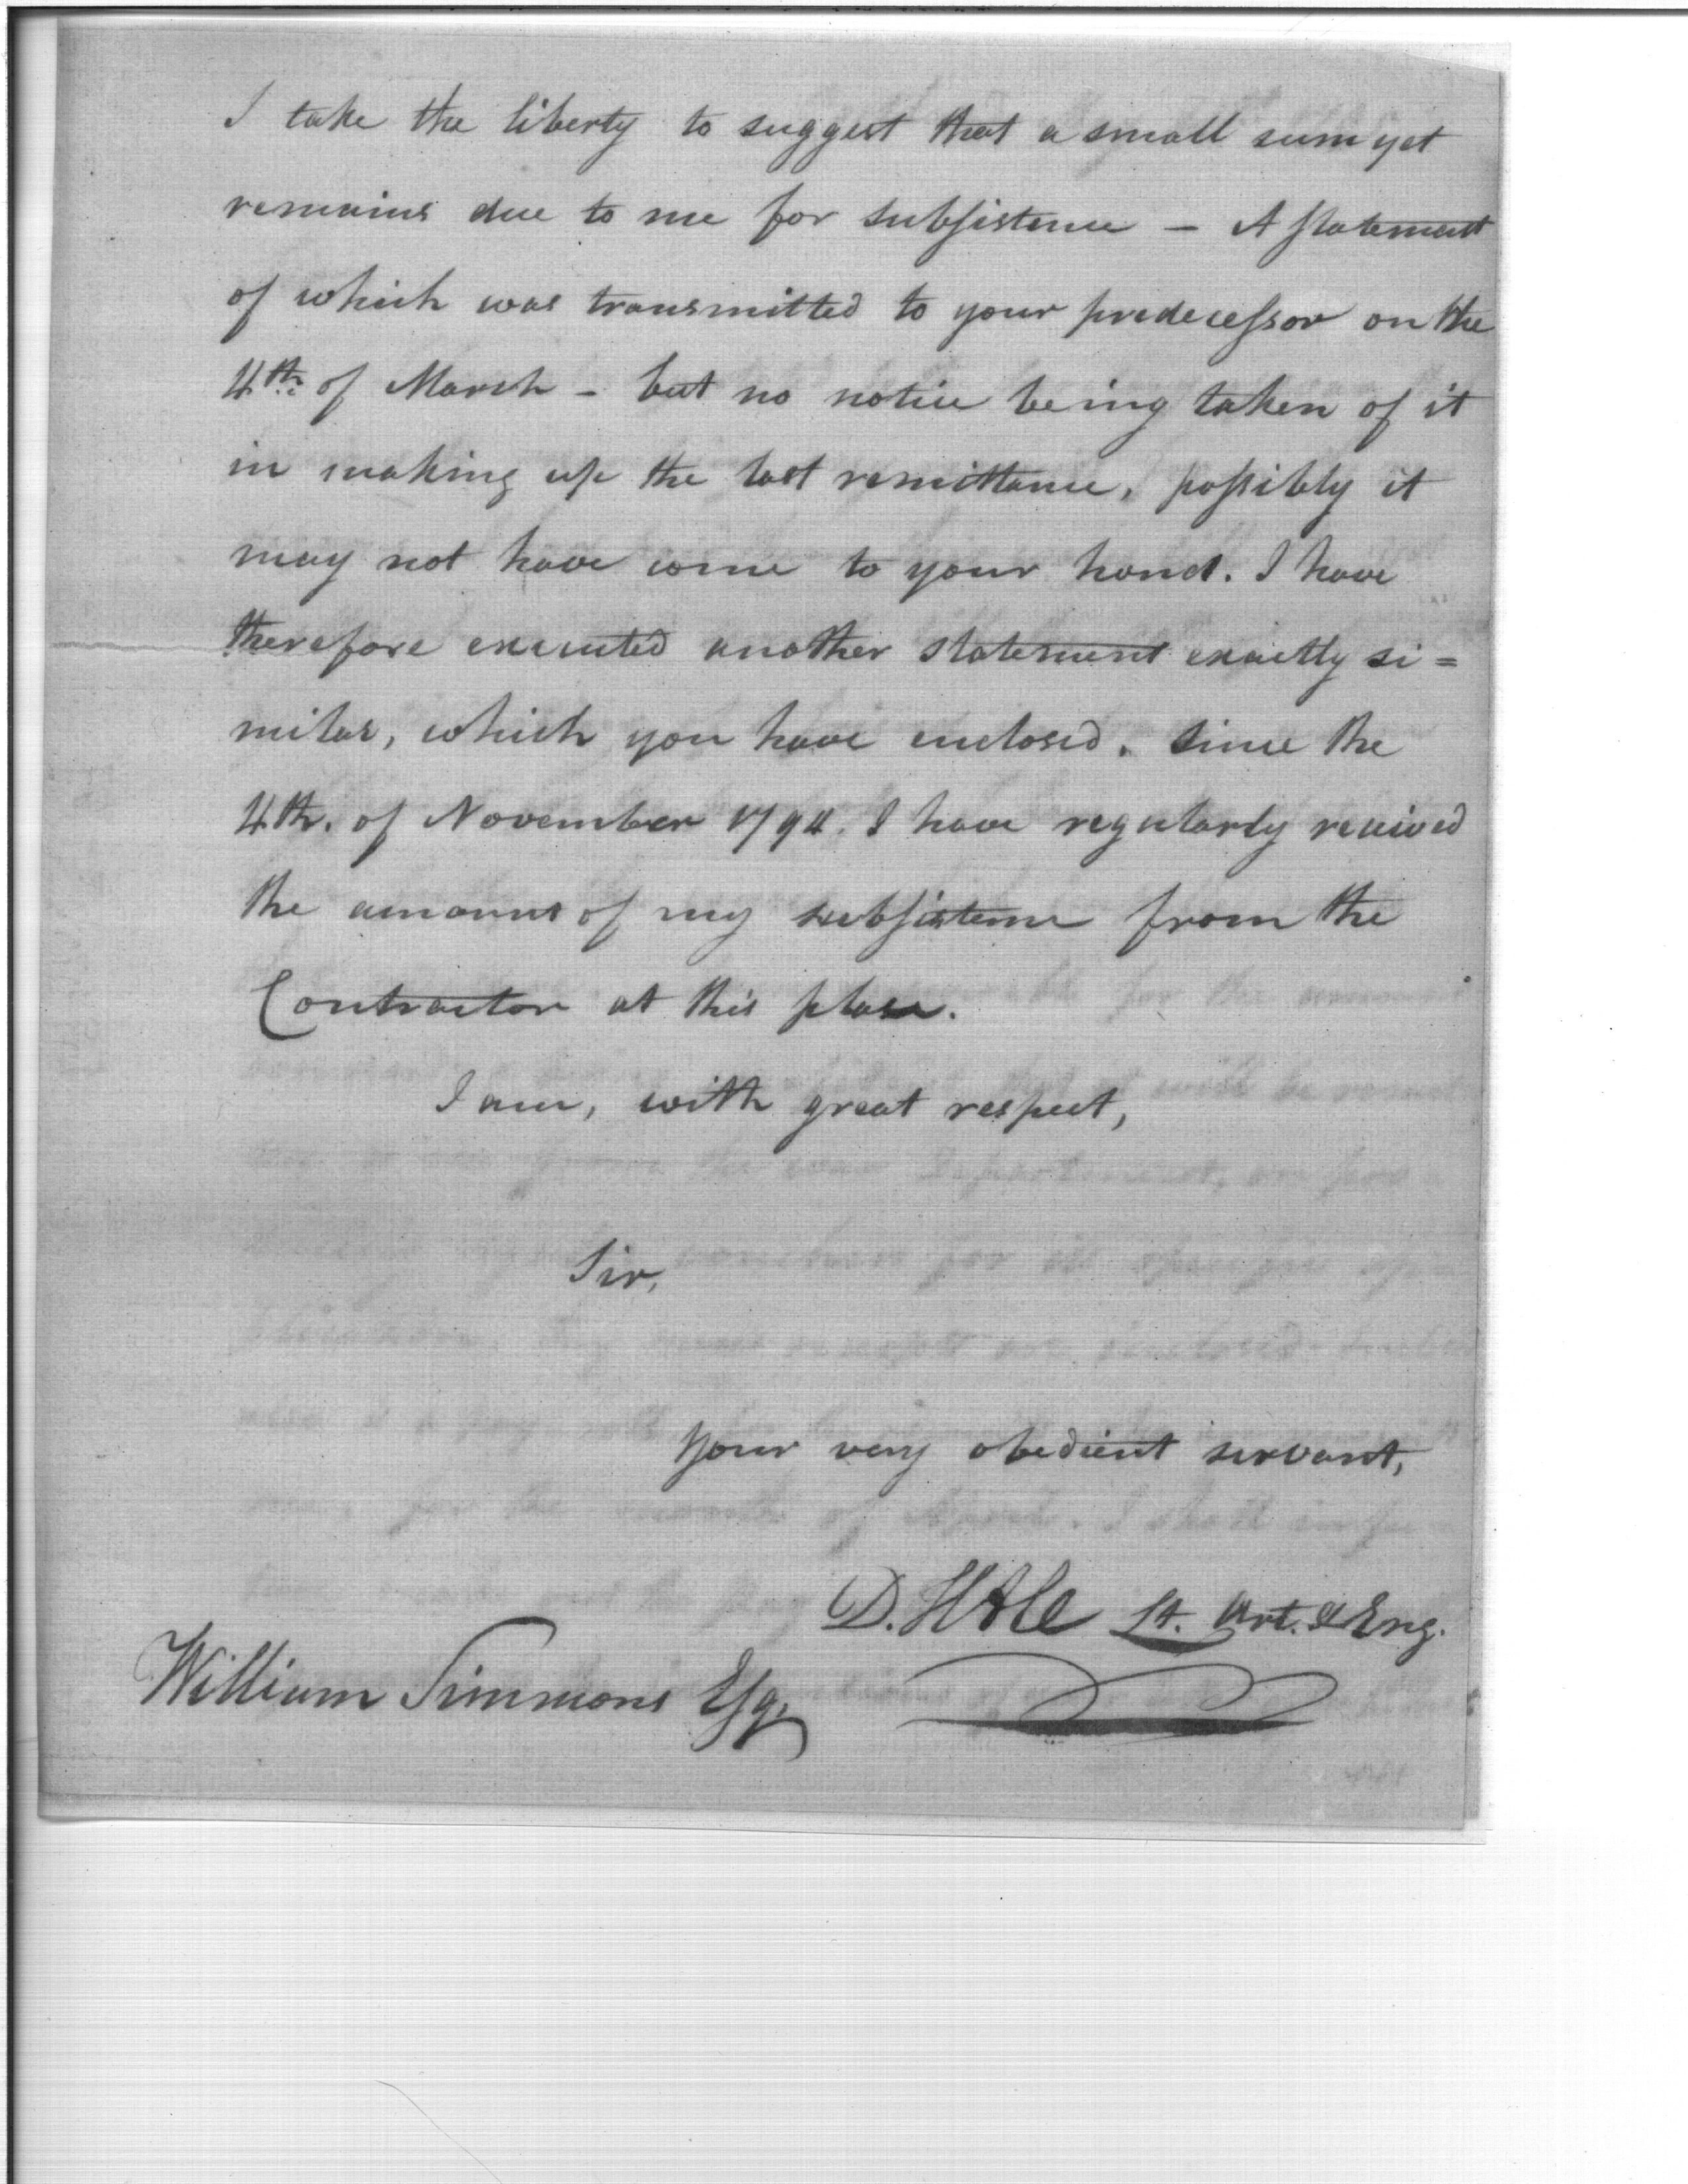 I take the liberty to suggest that a small sum yet
remains due to me for subsistence – A statement
of which was transmitted to your predecessor on the
4th of March – but no notice being taken of it
in making up the last remittance, possibly it
may not have come to your hand. I have
therefore executed another statement exactly si=
milar, which you have enclosed. Since the
4th. of November 1794. I have regularly received
the amount of my subsistence from the
Contractor at this place.
I am, with great respect,
Sir,
Your very obedient servant,
D. Hale Lt. Art. & Eng.
William Simmons Esq.